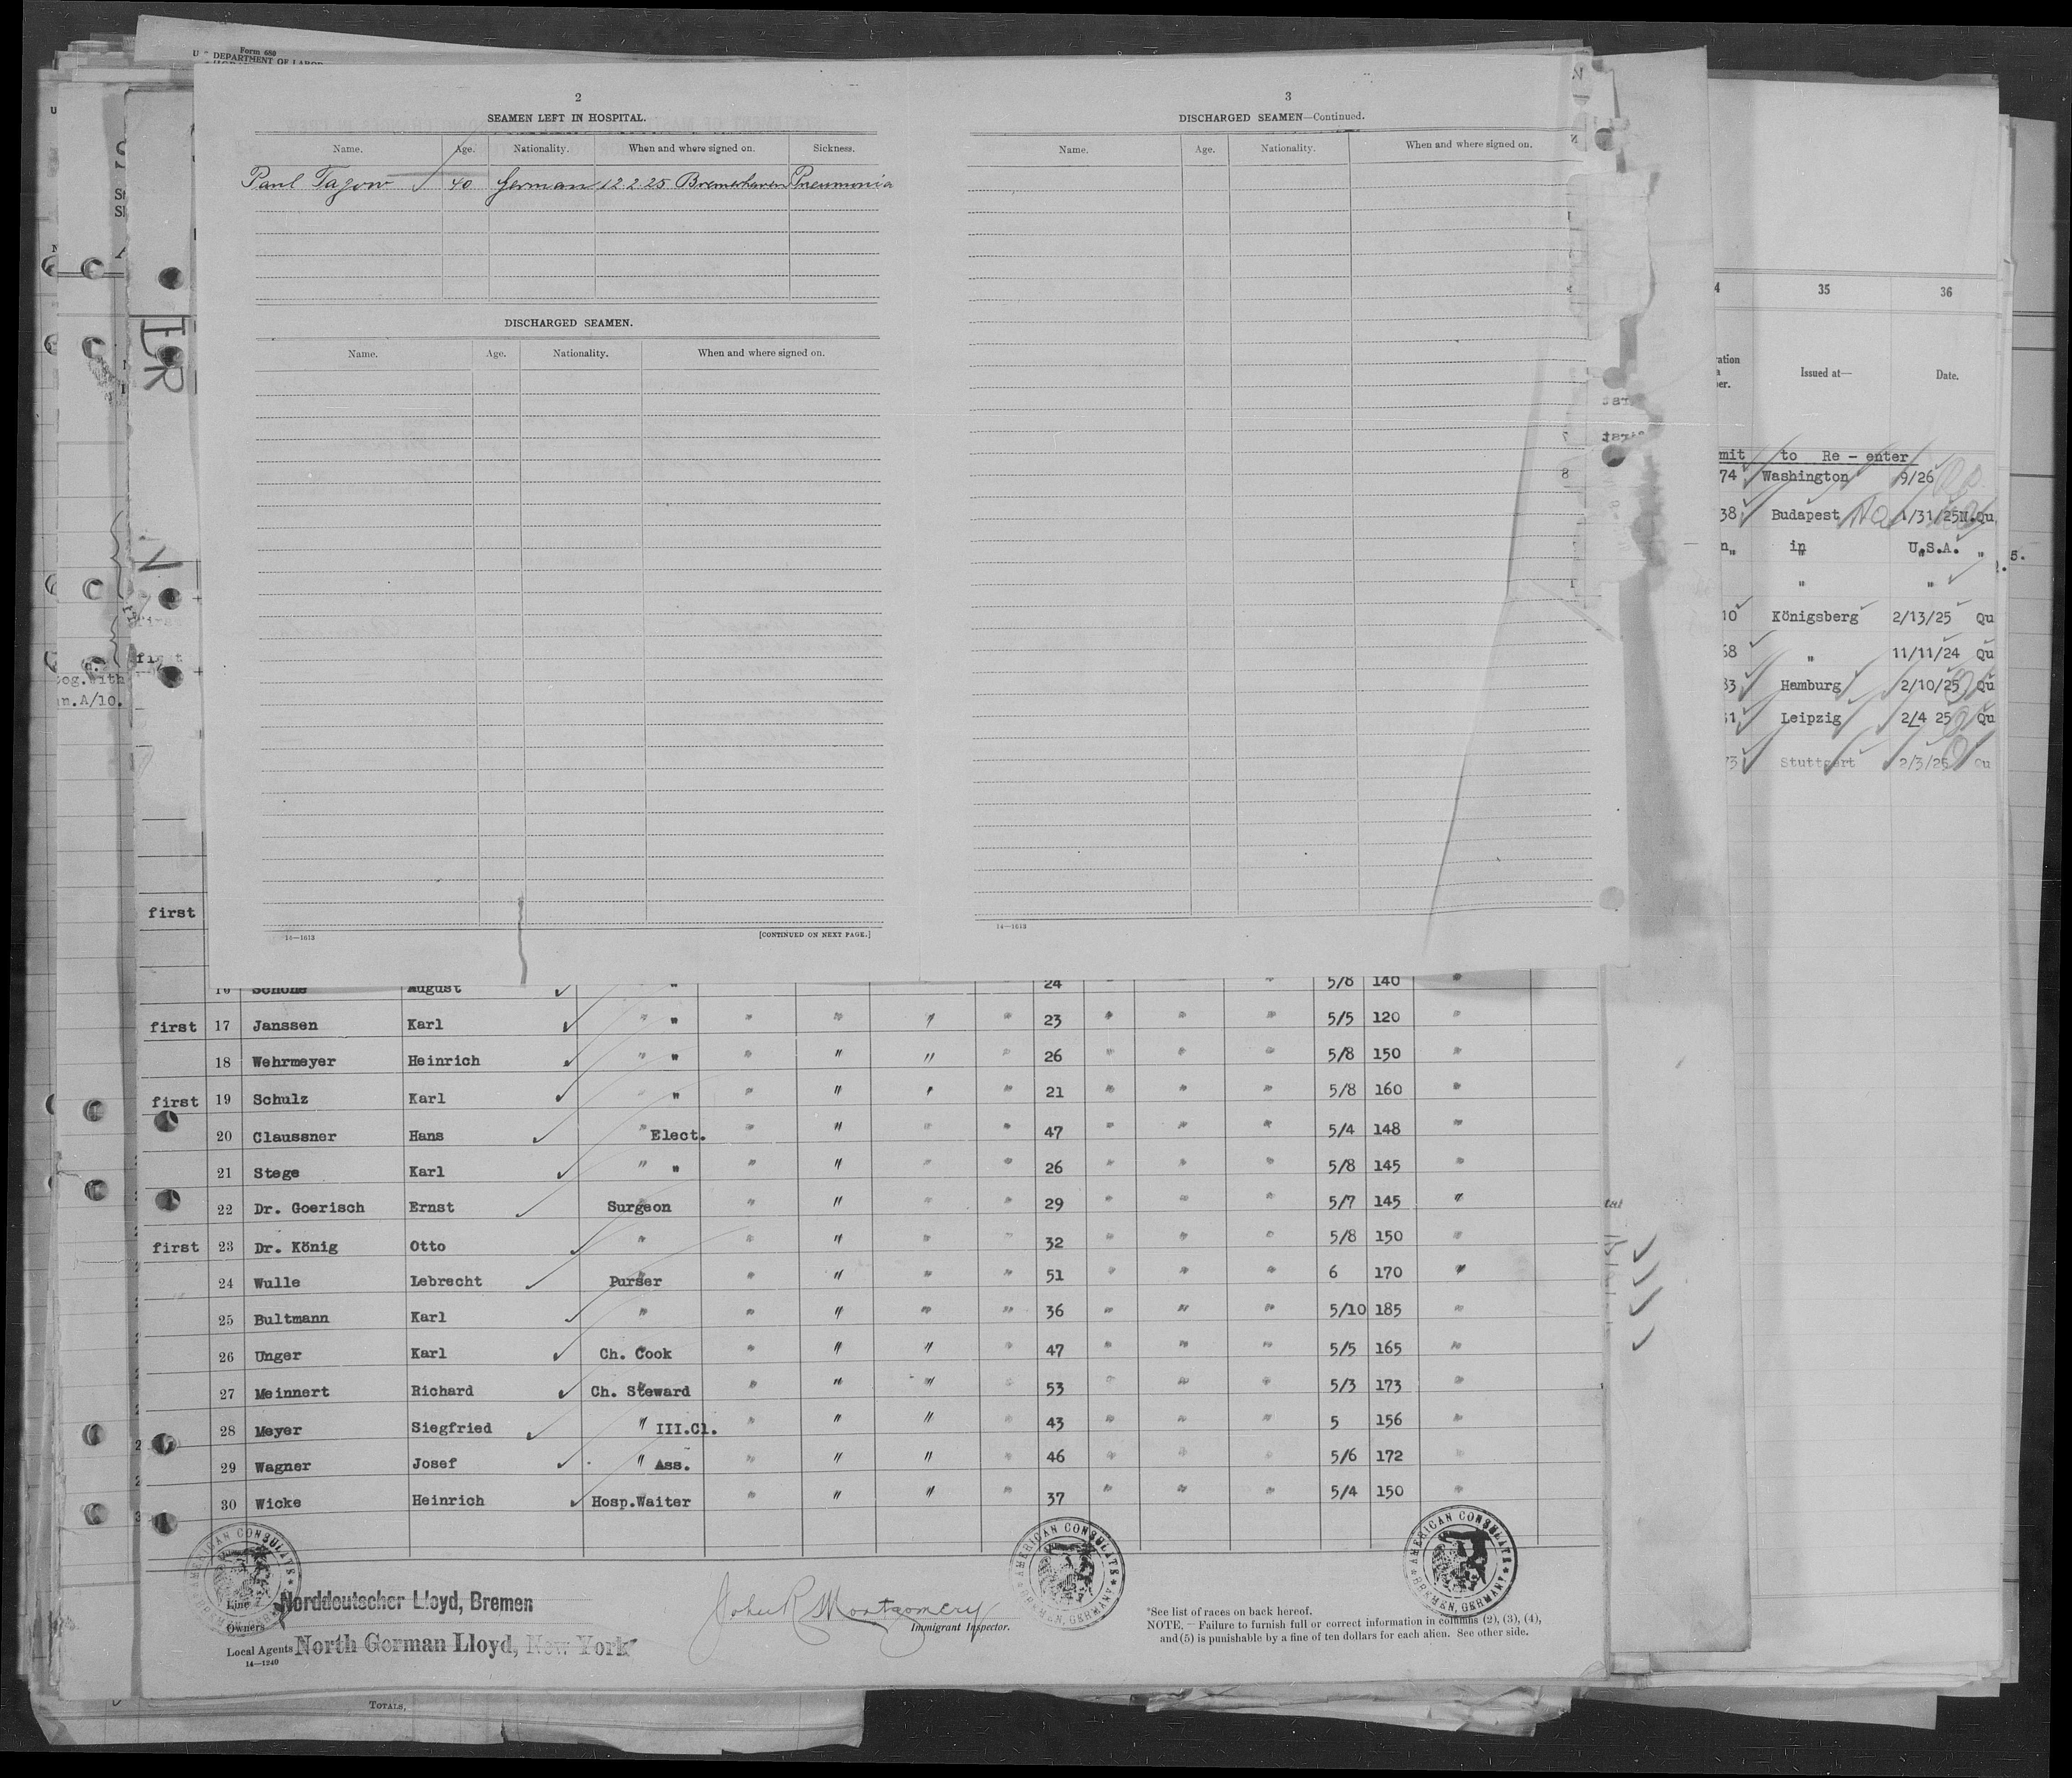 Form 680
DEPARTMENT OF LABOR
2
SEAMEN LEFT IN HOSPITAL.
Name. Age. Nationality. When and where signed on. Sickness.
Paul Tagow 40 German 12 2 25 Bremerhaven Pneumonia
DISCHARGED SEAMEN.
Name. Age. Nationality. When and where signed on.
14—1613 [CONTINUED ON NEXT PAGE.]
3
DISCHARGED SEAMEN—Continued.
Name. Age. Nationality. When and where signed on.
14—1613
35 36
Issued at— Date.
to Re - enter
74 Washington 9/26
38 Budapest 1/31/25 N.Qu.
in U.S.A. "
" "
10 Königsberg 2/13/25 Qu
68 " 11/11/24 Qu
83 Hamburg 2/10/25 Qu
Leipzig 2/4 25 Qu
73 Stuttgart 2/3/25 Qu
first
16 Schöne August " 24 5/8 140 "
first 17 Janssen Karl " " " " " " 23 " " " 5/5 120 "
18 Wehrmeyer Heinrich " " " " " " 26 " " " 5/8 150 "
first 19 Schulz Karl " " " " " " 21 " " " 5/8 160 "
20 Claussner Hans " Elect. " " " " 47 " " " 5/4 148 "
21 Stege Karl " " " " " " 26 " " " 5/8 145 "
22 Dr. Goerisch Ernst Surgeon " " " " 29 " " " 5/7 145 "
first 23 Dr. König Otto " " " " " 32 " " " 5/8 150 "
24 Wulle Lebrecht Purser " " " " 51 " " " 6 170 "
25 Bultmann Karl " " " " " 36 " " " 5/10 185 "
26 Unger Karl Ch. Cook " " " " 47 " " " 5/5 165 "
27 Meinnert Richard Ch. Steward " " " " 53 " " " 5/3 173 "
28 Meyer Siegfried " III.Cl. " " " " 43 " " " 5 156 "
29 Wagner Josef " Ass. " " " " 46 " " " 5/6 172 "
30 Wicke Heinrich Hosp.Waiter " " " " 37 " " " 5/4 150 "
AMERICAN CONSULATE BREMEN, GERMANY
AMERICAN CONSULATE BREMEN, GERMANY
AMERICAN CONSULATE BREMEN, GERMANY
Line Norddeutscher Lloyd, Bremen
Owners
Local Agents North German Lloyd, New York
14—1240
John R Montgomery
Immigrant Inspector.
*See list of races on back hereof.
NOTE.—Failure to furnish full or correct information in columns (2), (3), (4),
and (5) is punishable by a fine of ten dollars for each alien. See other side.
TOTALS,